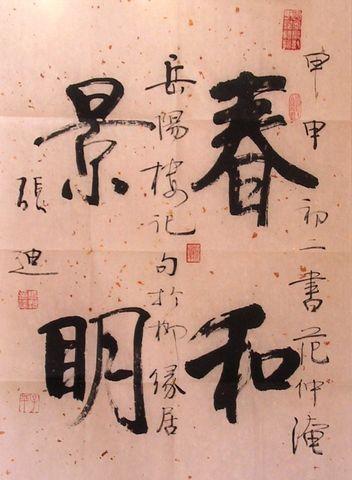 甲申初二書范仲淹
春和
岳陽樓記句於柳緣居
景明
張迪